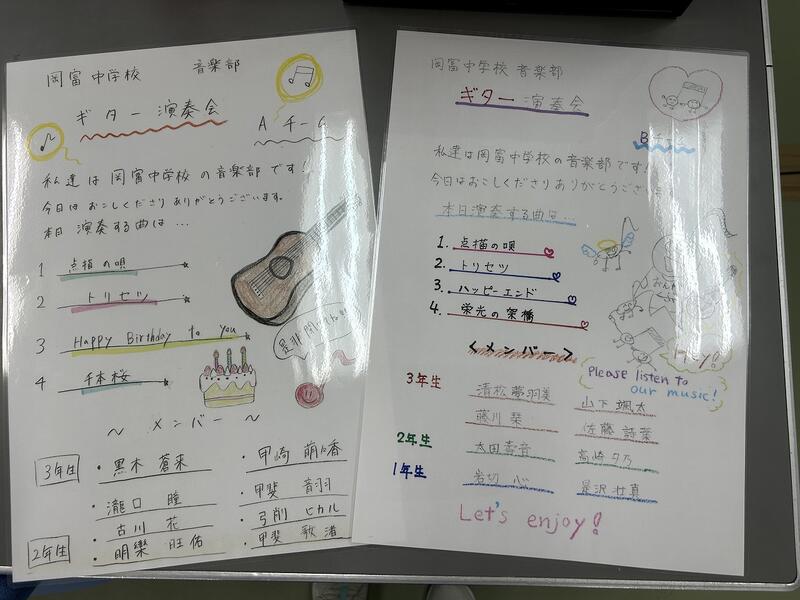 岡富中学校 音楽部
ギター 演奏会
Aチーム
私達は 岡富中学校 の 音楽部 です!
今日は おこしくださり ありがとうございます。
本日 演奏する曲は …
1 点描の唄
2 トリセツ
3 Happy Birthday to you
4 千本桜
是非
~ メンバー ~
3年生
・黒木 蒼来
・甲崎 萌々香
瀧口 瞳
・甲斐 音羽
古川 花
・弓削 ヒカル
2年生
・明樂 旺佑
・甲斐 歌渚
岡富中学校 音楽部
ギター 演奏会
Bチ
私達は岡富中学校の音楽部です!
今日はおこしくださりありがとうござい
本日演奏する曲は…
1. 点描の唄
2. トリセツ
3. ハッピーエンド
4. 栄光の架橋
Hey!
<メンバー>
Please listen to
our music!
3年生
清松夢羽美
山下 颯太
藤川 栞
佐藤 詩葉
2年生
太田 杏音
高崎 夕乃
1年生
岩切 心
是沢 壮真
Let's enjoy!